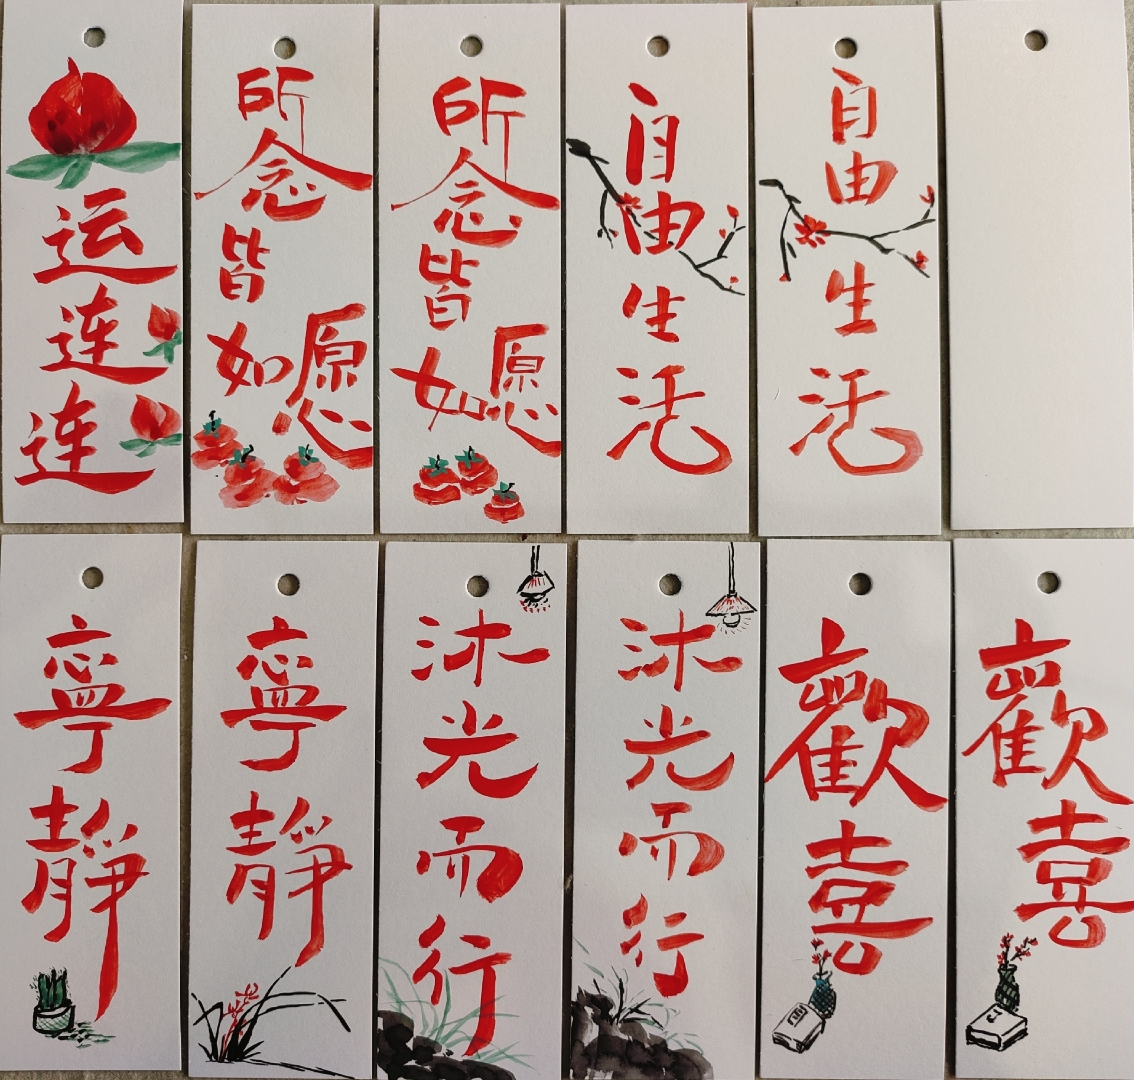 运连连
所念皆如愿
所念皆如愿
自由生活
自由生活
寧靜
寧靜
沐光而行
沐光而行
歡喜
歡喜